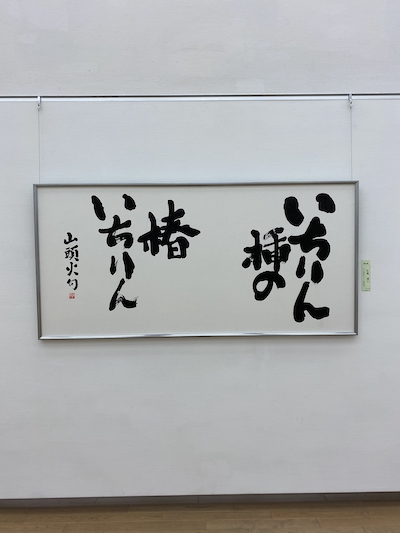 いちりん
挿の
椿
いちりん
山頭火句